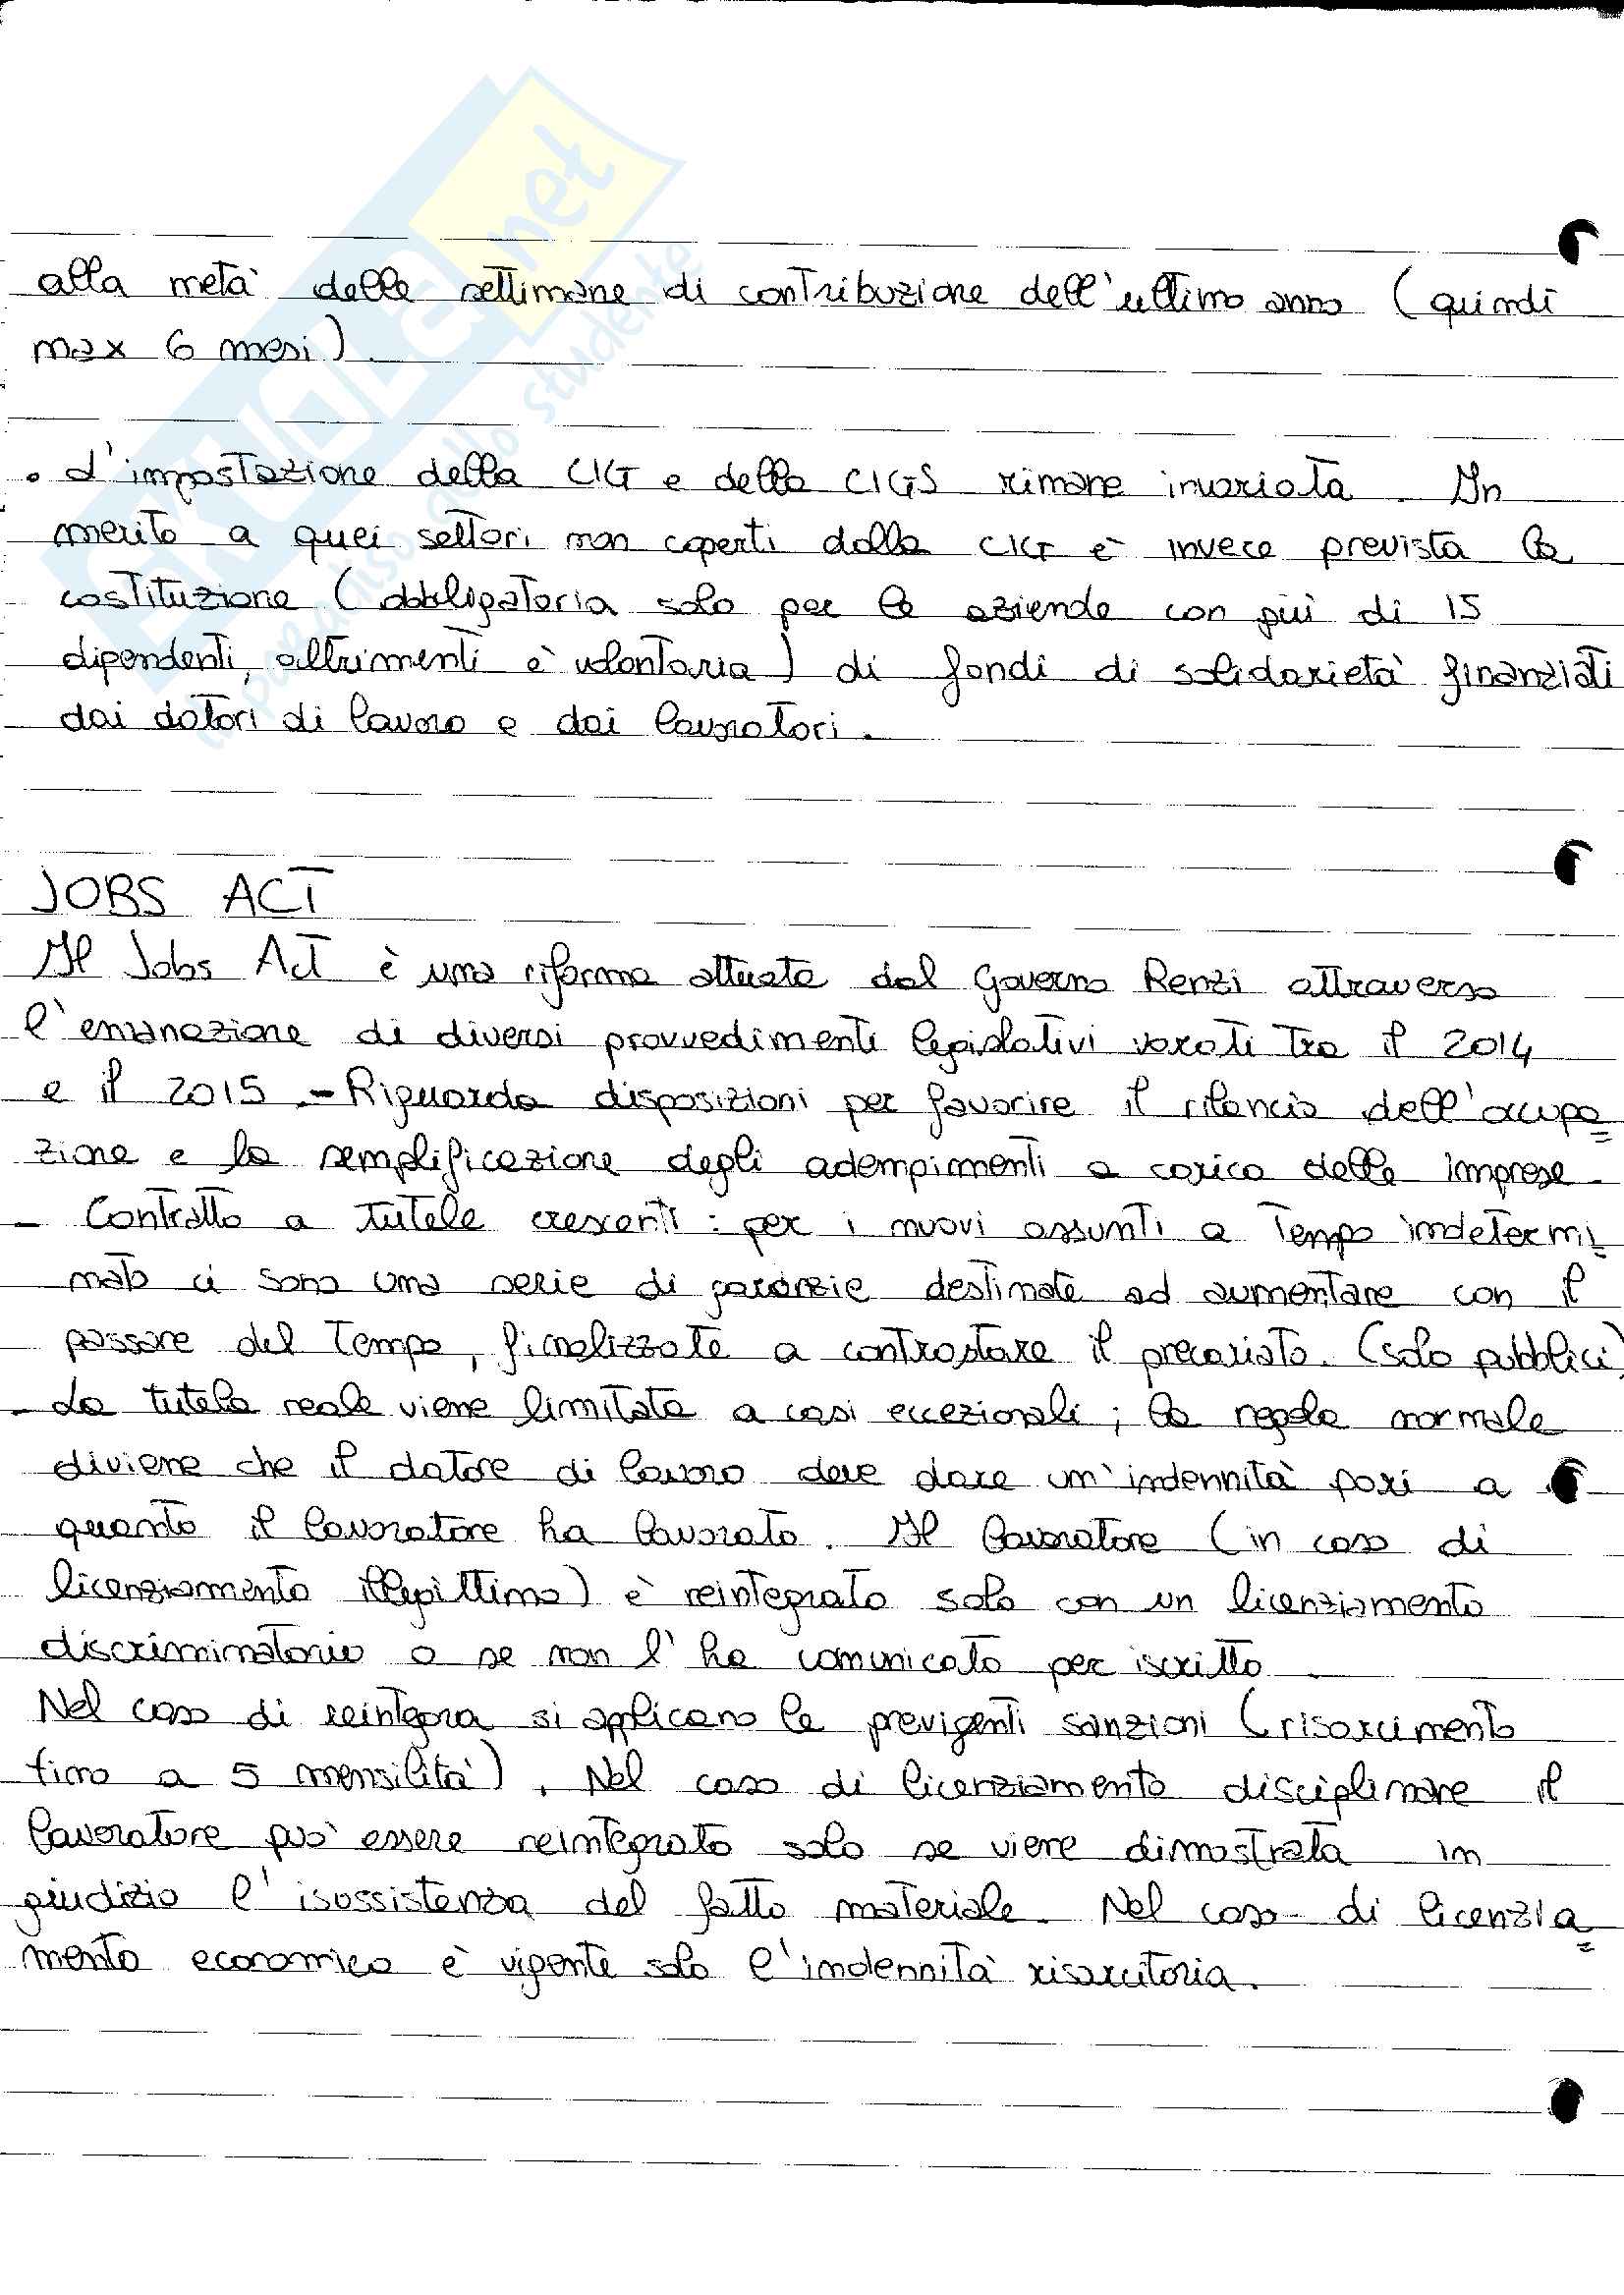 alla metà delle settimane di contribuzione dell'ultimo anno (quindi
max 6 mesi).
• L'impostazione della CIG e della CIGS rimane invariata. In
merito a quei settori non coperti dalla CIG è invece prevista la
costituzione (obbligatoria solo per le aziende con più di 15
dipendenti, altrimenti è volontaria) di fondi di solidarietà finanziati
dai datori di lavoro e dai lavoratori.
JOBS ACT
Il Jobs Act è una riforma attuata dal Governo Renzi attraverso
l'emanazione di diversi provvedimenti legislativi varati tra il 2014
e il 2015. - Riguarda disposizioni per favorire il rilancio dell'occupa=
zione e la semplificazione degli adempimenti a carico delle imprese.
- Contratto a tutele crescenti: per i nuovi assunti a tempo indetermi=
nato ci sono una serie di garanzie destinate ad aumentare con il
passare del tempo, finalizzate a contrastare il precariato. (solo pubblici)
- La tutela reale viene limitata a casi eccezionali; la regola normale
diviene che il datore di lavoro deve dare un'indennità pari a
quanto il lavoratore ha lavorato. Il lavoratore (in caso di
licenziamento illegittimo) è reintegrato solo con un licenziamento
discriminatorio o se non l'ha comunicato per iscritto.
Nel caso di reintegra si applicano le previgenti sanzioni (risarcimento
fino a 5 mensilità). Nel caso di licenziamento disciplinare il
lavoratore può essere reintegrato solo se viene dimostrata in
giudizio l'isussistenza del fatto materiale. Nel caso di licenzia=
mento economico è vigente solo l'indennità risarcitoria.
SKUOLA.net
il paradiso dello studente